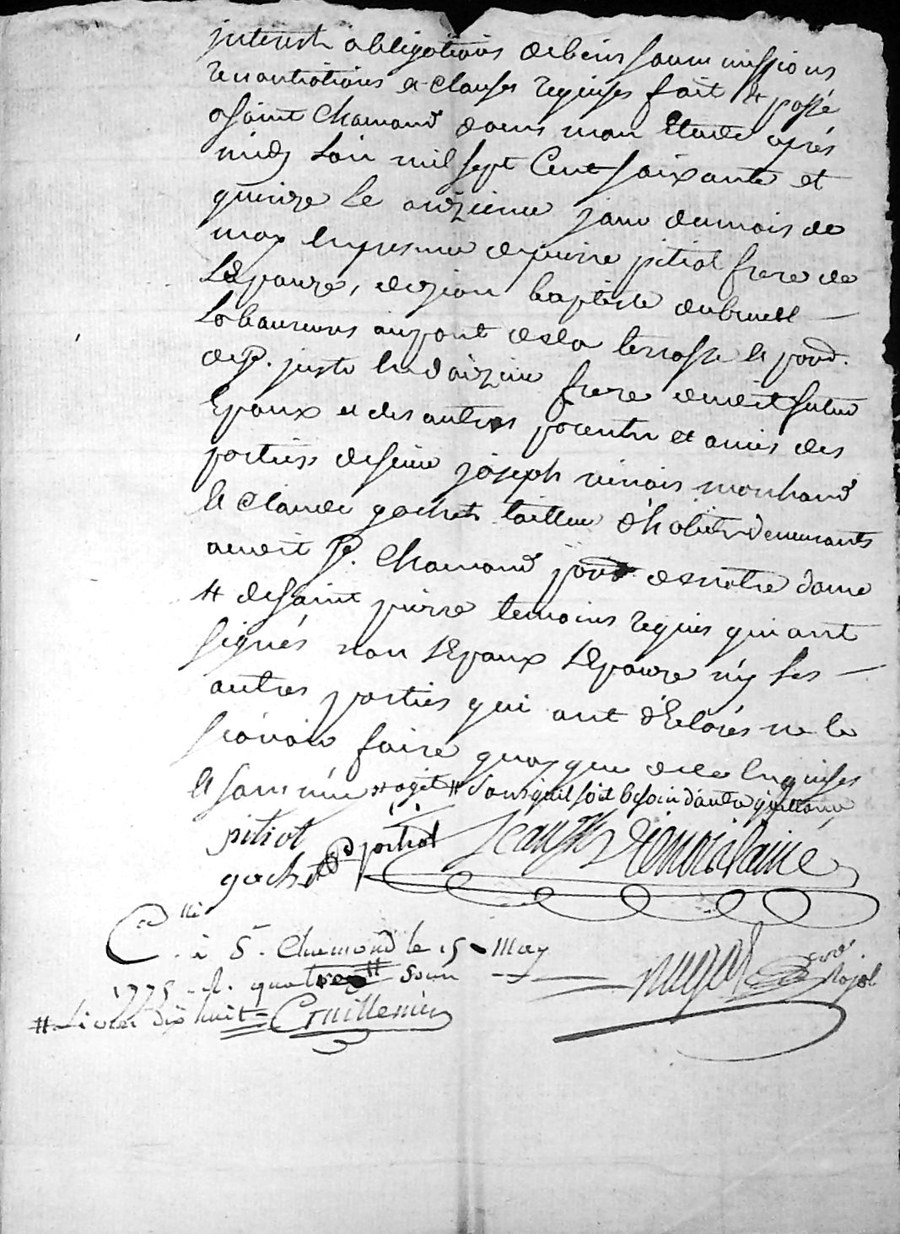 interest obligations de biens soummissions
renontiations et clauses requises fait et passé
a saint Chamond dans mon Etude après
midy L'an mil sept Cent soixante et
quinze le onzieme jour du mois de
may En presence de pierre pitiot frere de
L'Epouze, de jean baptiste dubruell
Laboureurs au pont de la terrasse
de St. juste En doizieu frere dudit futur
Epoux et des autres parents et amis des
parties de sieur joseph marchand
et Claude gachet tailleur d'habits demeurants
audit St. Chamond paroisse de notre dame
et de saint pierre temoins requis qui ont
signés non L'Epoux L'Epouze ny Les
autres parties qui ont déclarés ne le
sçavoir faire quoyque de ce Enquises
et sommées sans qu'il soit besoin d'autre quittance
pitiot
gachet pitiot
C. à St. Chamond le 15 May
1775 R. quatre sous
# Livres dix huit